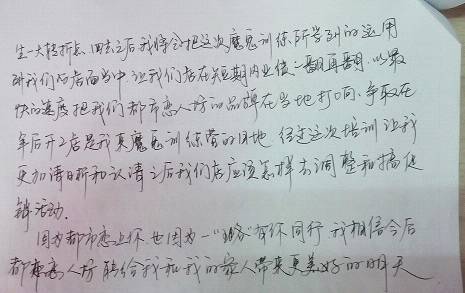 生一大转折点 回去之后我将会把这次魔鬼训练所学到的运用
到我们的店面当中 让我们店在短期内业绩一翻再翻 以最
快的速度把我们都市恋人坊的品牌在当地打响 争取在
年后开2店是我来魔鬼训练营的目地 经过这次培训让我
更加清晰和认清了之后我们店应该怎样去调整和搞促
销活动.
因为都市恋上你 也因为一 有你同行 我相信今后
都市恋人坊能给我和我的家人带来更美好的明天